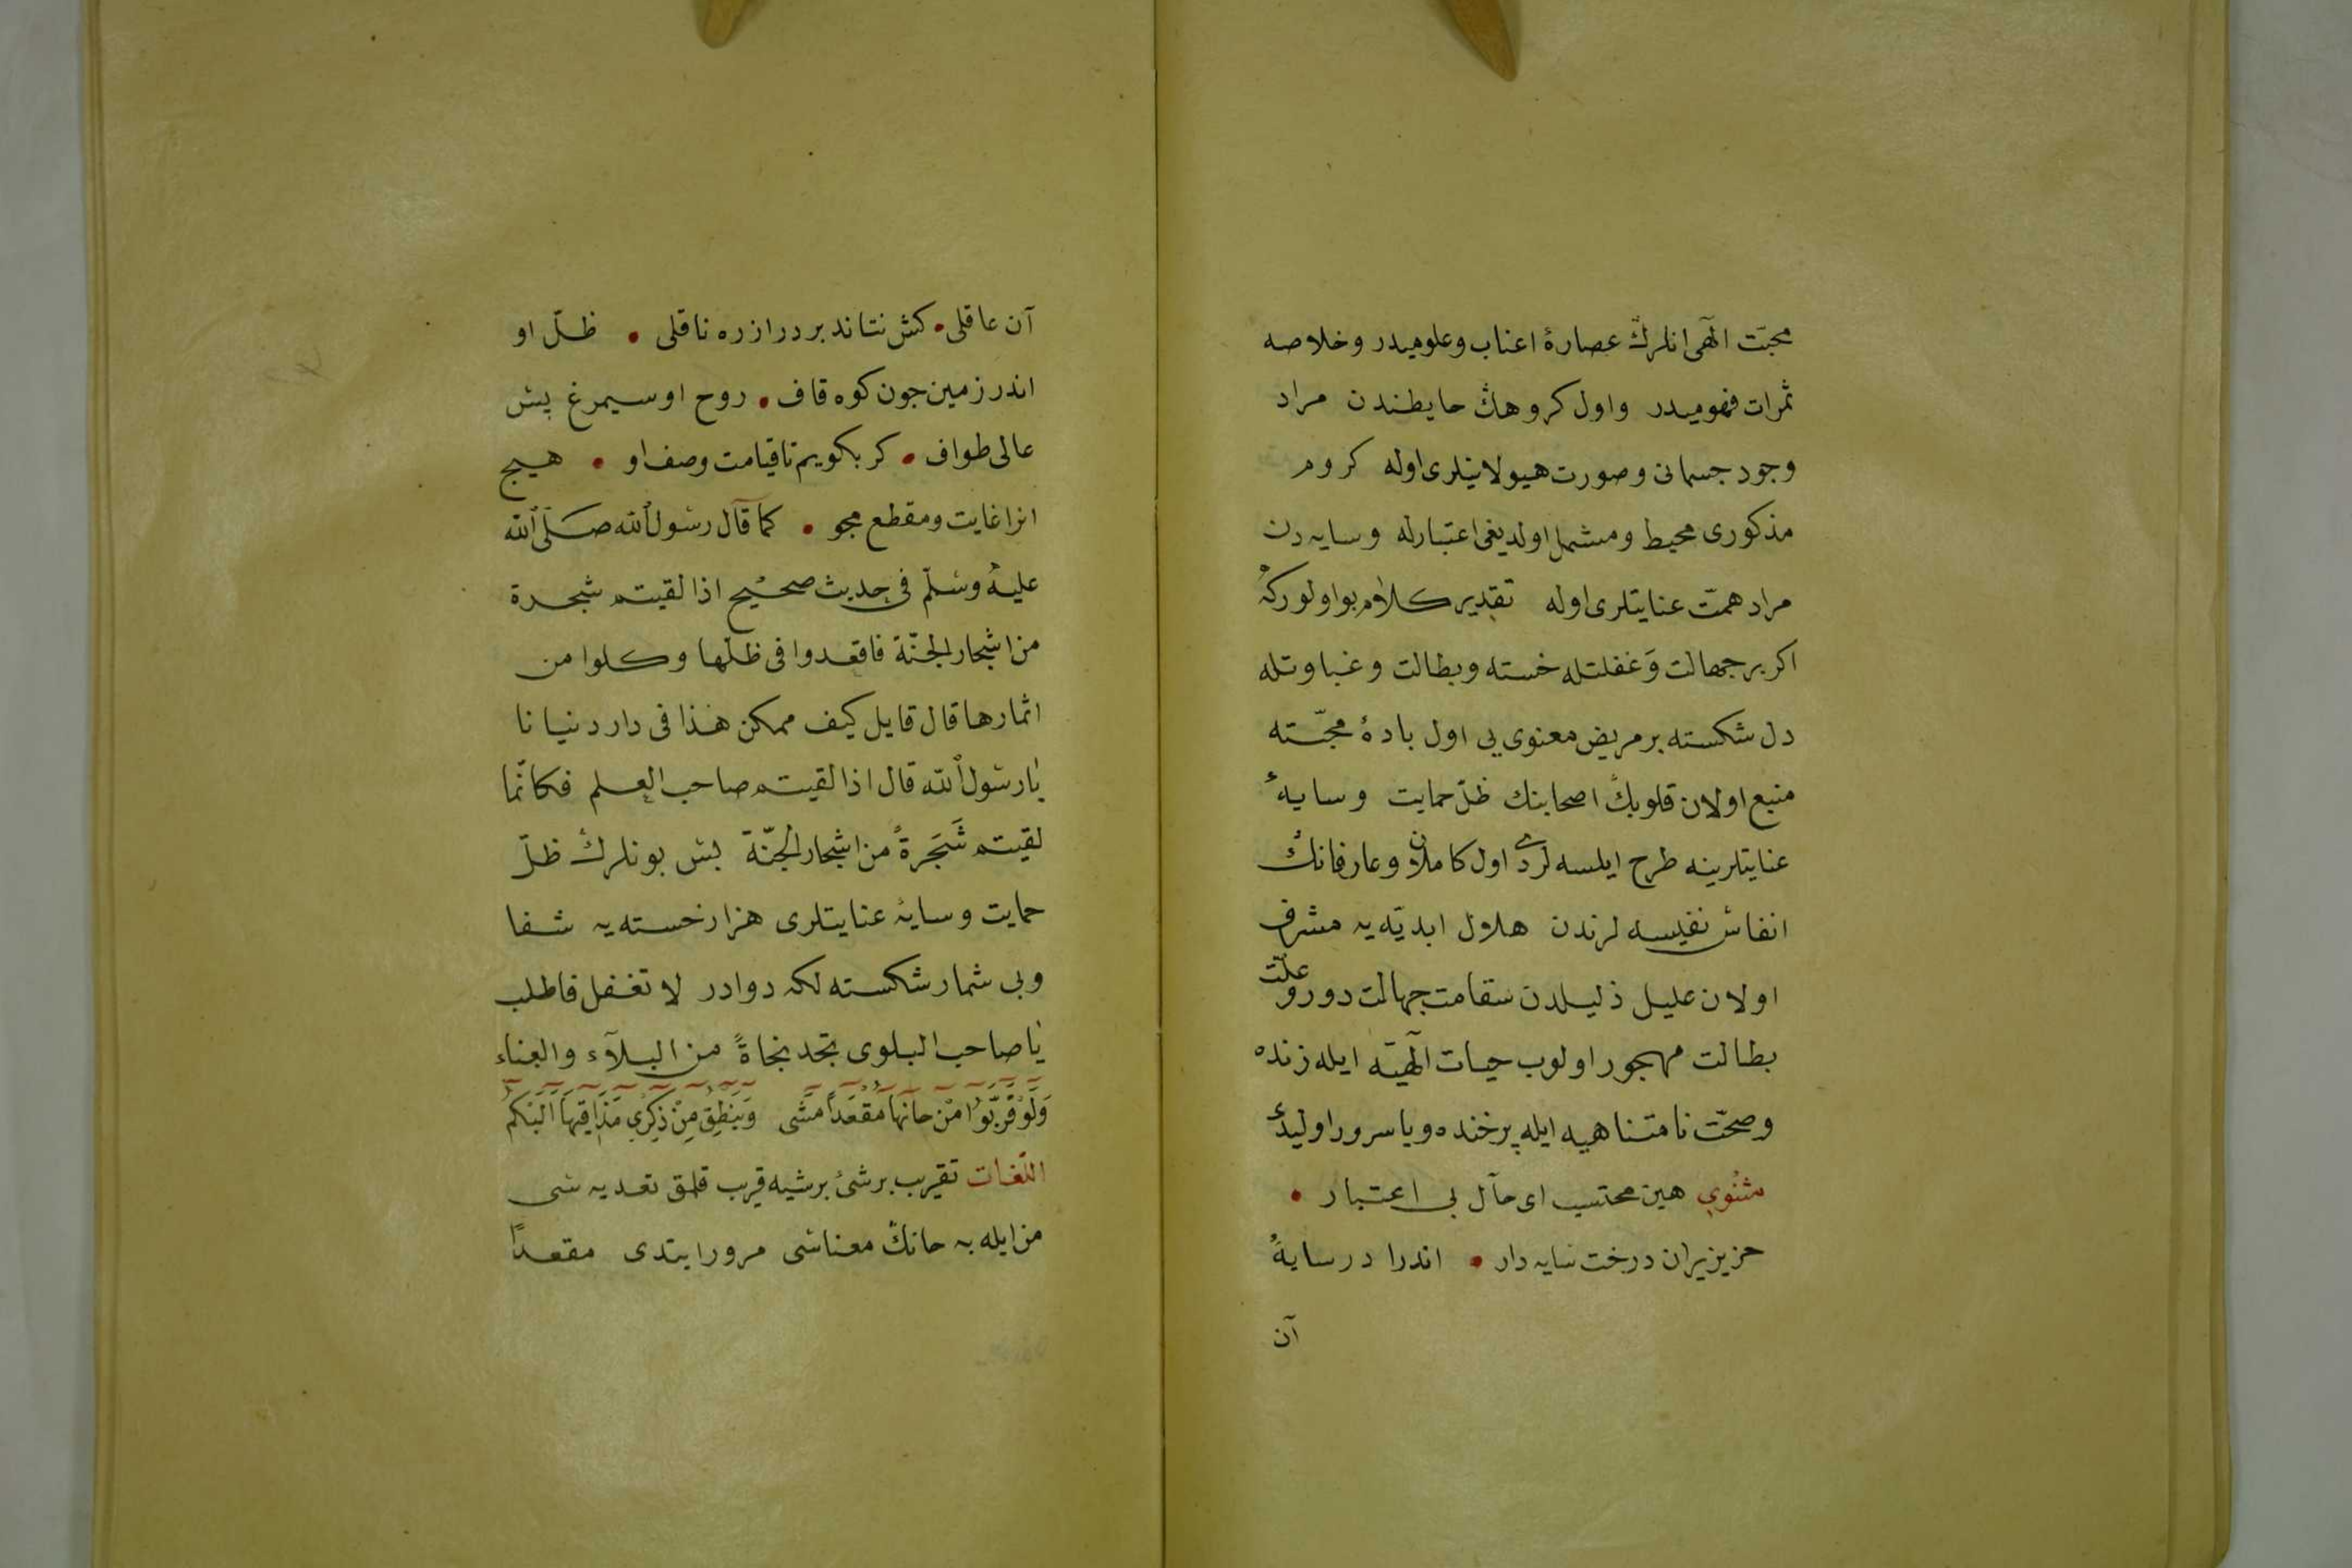 محبّت الٓهی انلرڭ عصارهٔ اعناب وعلومیدر وخلاصه
ثمرات فهومیدر واول کروهڭ حایطندن مراد
وجود جسمانی وصورت هیولانیلری اوله کروم
مذکوری محیط ومشمل اولدیغی اعتبارله وسایه دن
مراد همّت عنایتلری اوله تقدیر کلام بو اولورکه
اکر بر جهالت وَغفلتله خسته وبطالت وغباوتله
دل شکسته بر مریض معنوی یی اول بادهٔ محبّته
منبع اولان قلوبڭ اصحابنك ظلّ حمایت وسایهٔ
عنایتلرینه طرح ایلسه لردی اول کاملان وعارفانڭ
انفاس نفیسه لرندن هلاول ابدیّه یه مشرف
اولان علیل ذلیلدن سقامت جهالت دور وعلّت
بطالت مهجور اولوب حیات الٓهیّه ایله زنده
وصحّت نامتناهیه ایله پرخنده ویاسرور اولیدی
مثنوی هین محتسب ای مآل بی اعتبار •
خزیزیران درخت سایه دار • اندرا در سایهٔ
آن
آن عاقلی • کش نتاند برد از ره ناقلی • ظلّ او
اندر زمین جون کوه قاف • روح او سیمرغ بس
عالی طواف • کر بکویم تا قیامت وصف او • هیج
انرا غایت ومقطع مجو • کما قال رسول الله صلّی الله
علیه وسلّم فی حدیث صحیح اذا لقیتم شجرة
من اشجار الجنّة فاقعدوا فی ظلّها وکلوا من
اثمارها قال قایل کیف ممکن هٰذا فی دار دنیا نا
یا رسول الله قال اذا لقیتم صاحب العلم فکانّما
لقیتم شَجَرةً من اشجار الجنّة بس بونلرڭ ظلّ
حمایت وسایهٔ عنایتلری هزار خسته یه شفا
وبی شمار شکسته لکه دوادر لا تغفل فاطلب
یا صاحب البلوی تجد نجاةً من البلآء والعناء
وَلَوْ قَرَّبُوا مِنْ حَانِهَا مُقْعَدًا مَشَی وَیَنْطِقُ مِنْ ذِکْرِی مَذَاقِهَا اَلْبَکَمُ
اللّغات تقریب بر شیٔ بر شیه قریب قلمق تعدیه سی
من ایله به حانڭ معناسی مرور ایتدی مقعداً